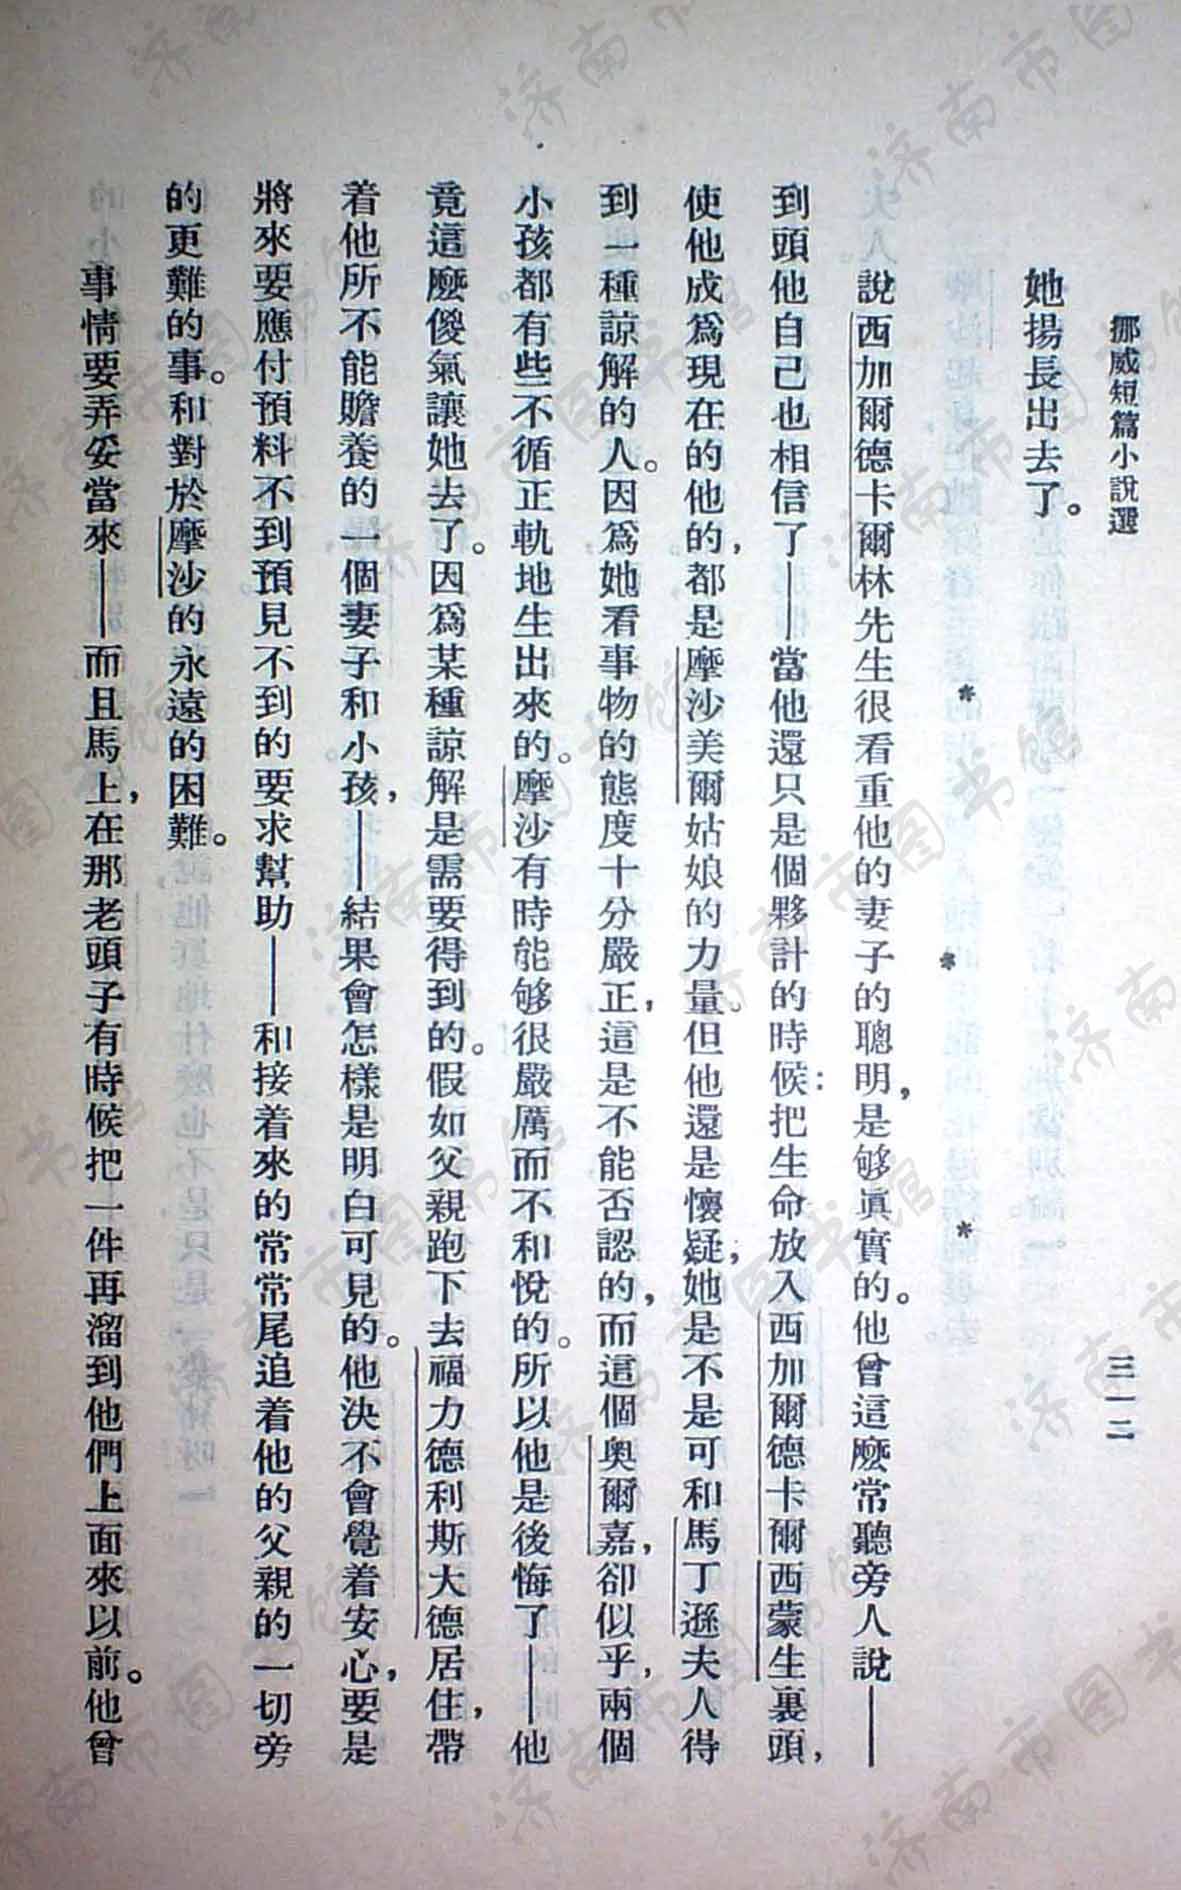 挪威短篇小說選
三一二
她揚長出去了。
* * *
說西加爾德卡爾林先生很看重他的妻子的聰明，是够眞實的。他曾這麼常聽旁人說——
到頭他自己也相信了——當他還只是個夥計的時候：把生命放入西加爾德卡爾西蒙生裏頭，
使他成爲現在的他的，都是摩沙美爾姑娘的力量。但他還是懷疑，她是不是可和馬丁遜夫人得
到一種諒解的人。因爲她看事物的態度十分嚴正，這是不能否認的，而這個奧爾嘉，卻似乎，兩個
小孩都有些不循正軌地生出來的。摩沙有時能够很嚴厲而不和悅的。所以他是後悔了——他
竟這麼傻氣讓她去了。因爲某種諒解是需要得到的。假如父親跑下去福力德利斯大德居住，帶
着他所不能贍養的一個妻子和小孩，——結果會怎樣是明白可見的。他決不會覺着安心，要是
將來要應付預料不到預見不到的要求幫助——和接着來的常常尾追着他的父親的一切旁
的更難的事。和對於摩沙的永遠的困難。
事情要弄妥當來——而且馬上，在那老頭子有時候把一件再溜到他們上面來以前。他曾
济南市图书馆